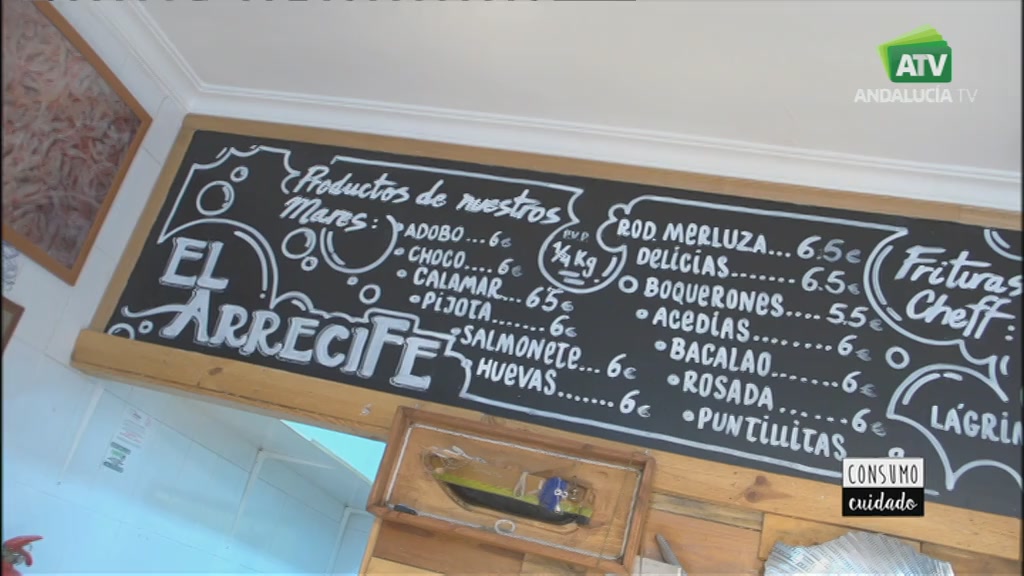 ATV
ANDALUCÍA TV
Productos de nuestros
Mares:
EL
ARRECIFE
• ADOBO... 6€
• CHOCO.... 6€
• CALAMAR... 6'5€
• PIJOTA....... 6€
• SALMONETE... 6€
• HUEVAS....... 6€
P.V.P.
1/4 Kg
ROD. MERLUZA... 6.5€
DELICIAS....... 6.5€
• BOQUERONES.... 5.5€
• ACEDÍAS........ 6€
• BACALAO....... 6€
• ROSADA ...... 6€
• PUNTILLITAS
Frituras
Cheff:
CONSUMO
cuidado